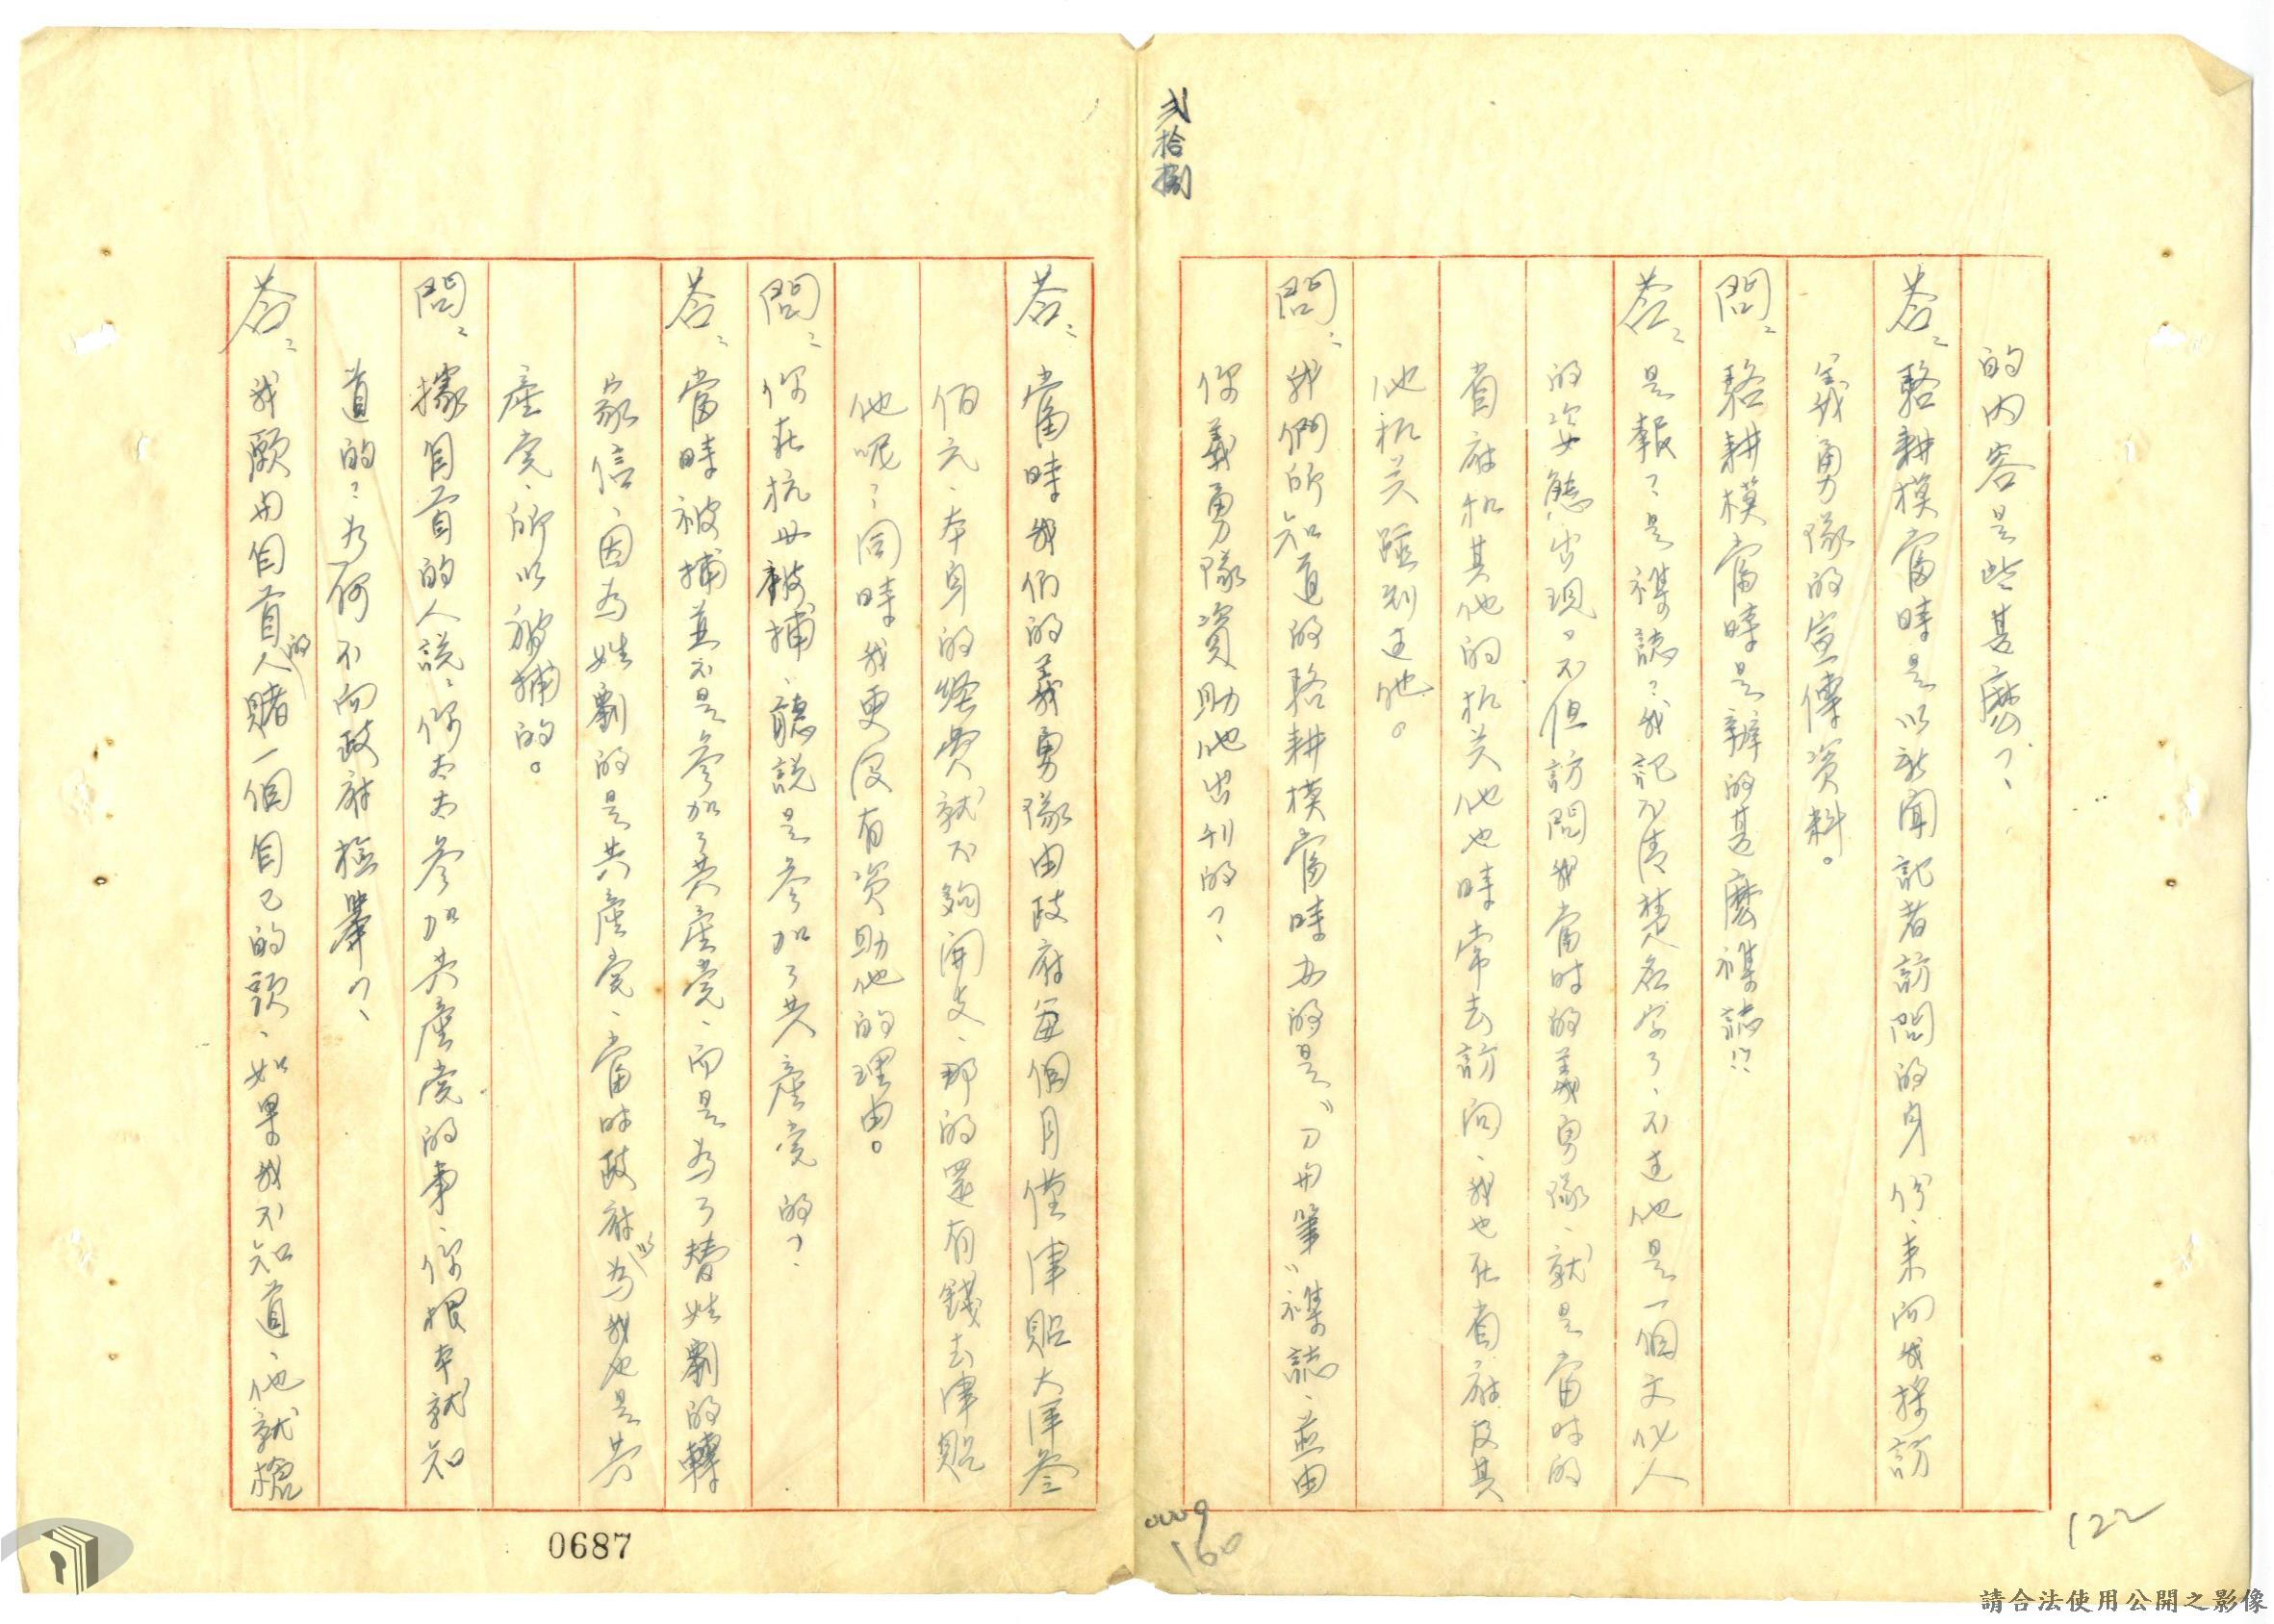 貳拾捌
的内容是些甚麽？、
答：駱耕模當時是以新聞記者訪問的身份、来向我採訪
義勇隊的宣傳資料。
問：駱耕模當時是辦的甚麽襍誌!?
答：是報？、是襍誌？、我記不清楚名字了、不过他是一個文化人
的姿態出現，不但訪問我當时的義勇隊、就是當时的
省府和其他的机关他也時常去訪问、我也在省府及其
他机关碰到过他。
問：我們所知道的駱耕模當時办的是〝刀与筆〞襍誌、並由
你義勇隊資助他出刊的？、
答：當時我们的義勇隊由政府每個月僅津貼大洋叁
佰元、本身的経费就不夠開支、那的還有錢去津貼
他呢？、同時我更没有資助他的理由。
問：你在杭州被捕、聽説是參加了共產党的？、
答：當時被捕並不是參加了共產党、而是為了替姓劉的轉
家信、因為姓劉的是共產党、當时政府以為我也是共
產党、所以被捕的。
問：據自首的人説、你太太參加共產党的事、你根本就知
道的？、為何不向政府檢舉？、
答：我願与自首的人賭一個自己的頭、如果我不知道、他就槍
0687
0009
160
122
請合法使用公開之影像